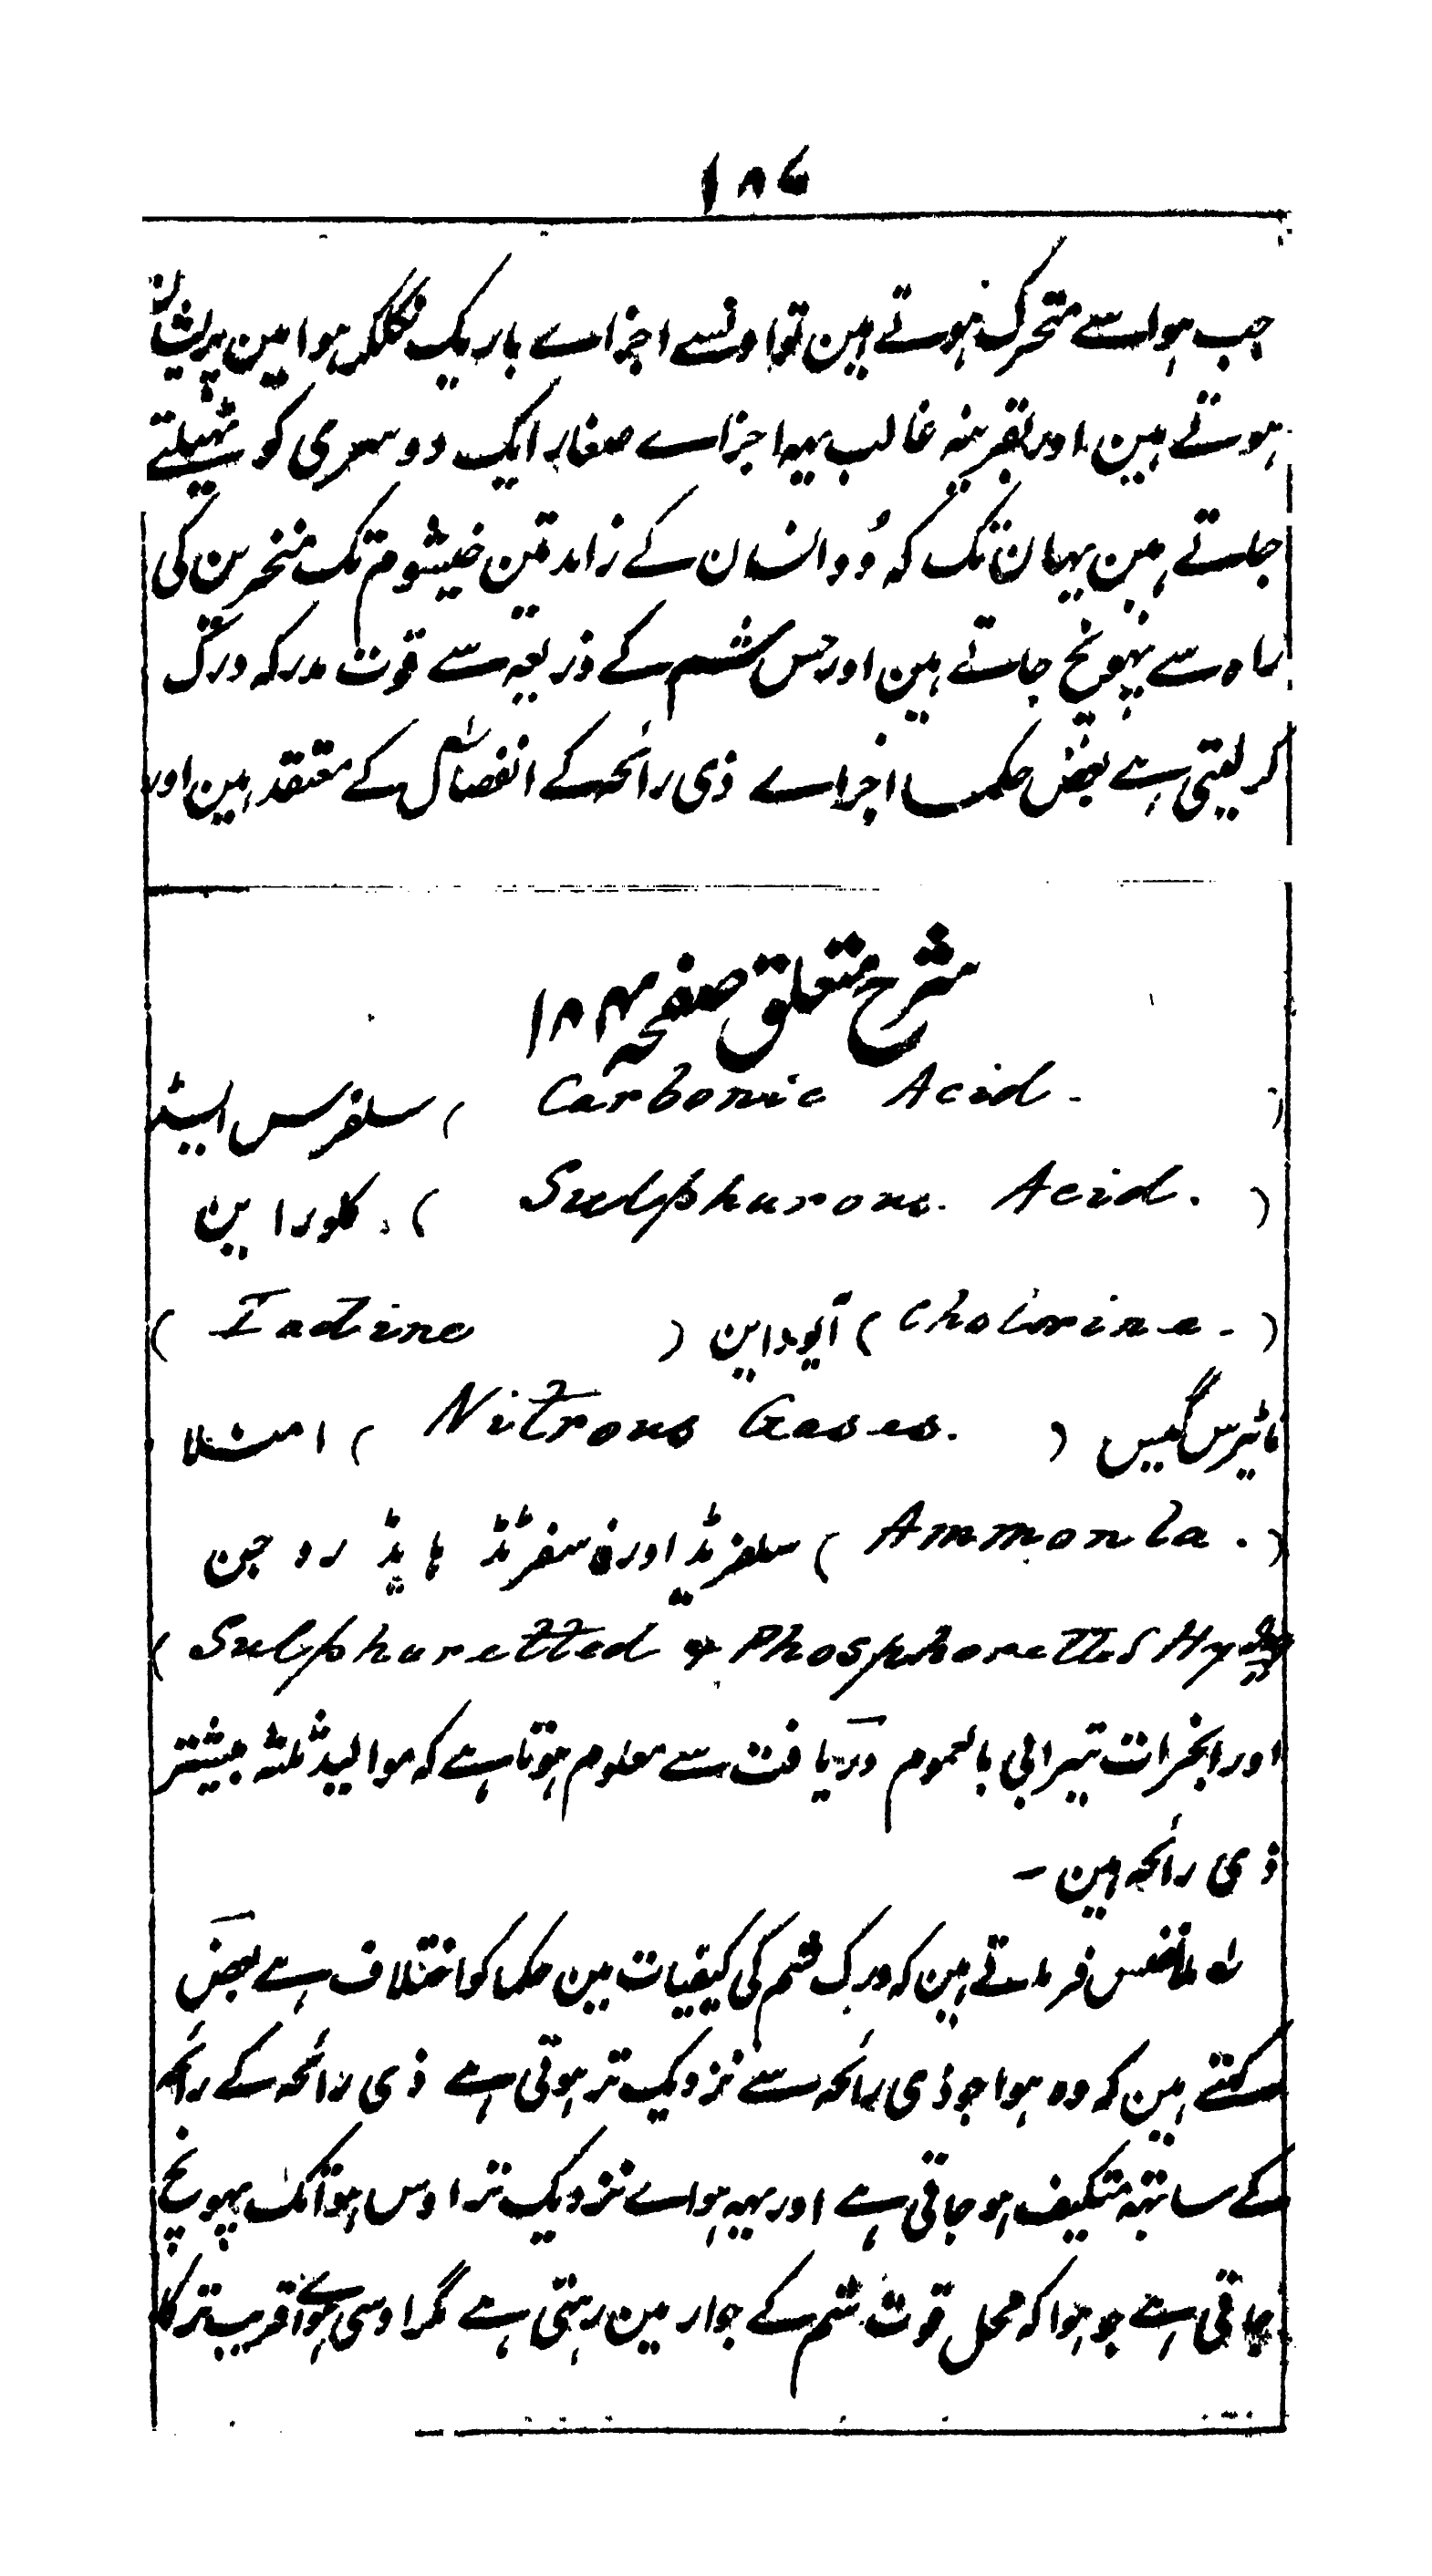 ۱۸۶
جب ہوا سے متحرک ہوتے ہین تو اونسے اجزاے باریک نکلکر ہوا مین پریشان
ہوتے ہین اور بقرینہ غالب یہہ اجزاے صغار ایک دوسری کو ٹہیلتے
جاتے ہین یہان تک کہ وُہ انسان کے زائدتین خیشوم تک منخرین کی
راہ سے پہونچ جاتے ہین اور حس شم کے ذریعہ سے قوت مدرکہ درک
کر لیتی ہے بعض حکما اجزاے ذی رائحہ کے انفصال کے معتقد ہین اور
شرح متعلق صفحہ ۱۸۴
( Carbonic Acid. ) سلفرس ایسڈ
( Sulphurous. Acid. ) کلوراین
( Cholorine. ) آیوداین ( Iadine )
نائیٹرس گیس ( Nitrous Gases. ) امثلا
( Ammonia. ) سلفریٹڈ اور فاسفرٹڈ ہایڈروجن
( Sulphuretted & Phosphorettes Hy
اور ابخرات تیزابی بالعموم دریافت سے معلوم ہوتا ہے کہ موالید ثلثہ بیشتر
ذی رائحہ ہین ۔
نفس فرماتے ہین کہ درک شم کی کیفیات مین حکما کو اختلاف ہے بعض
کہتے ہین کہ وہ ہوا جو ذی رائحہ سے نزدیک تر ہوتی ہے ذی رائحہ کے رائحہ
کے ساتہہ متکیف ہو جاتی ہے اور یہہ ہواے نزدیک تر اوس ہوا تک پہونچ
جاتی ہے جو ہوا کہ محل قوت شم کے جوار مین رہتی ہے مگر اوسی ہواے قریب تر کا